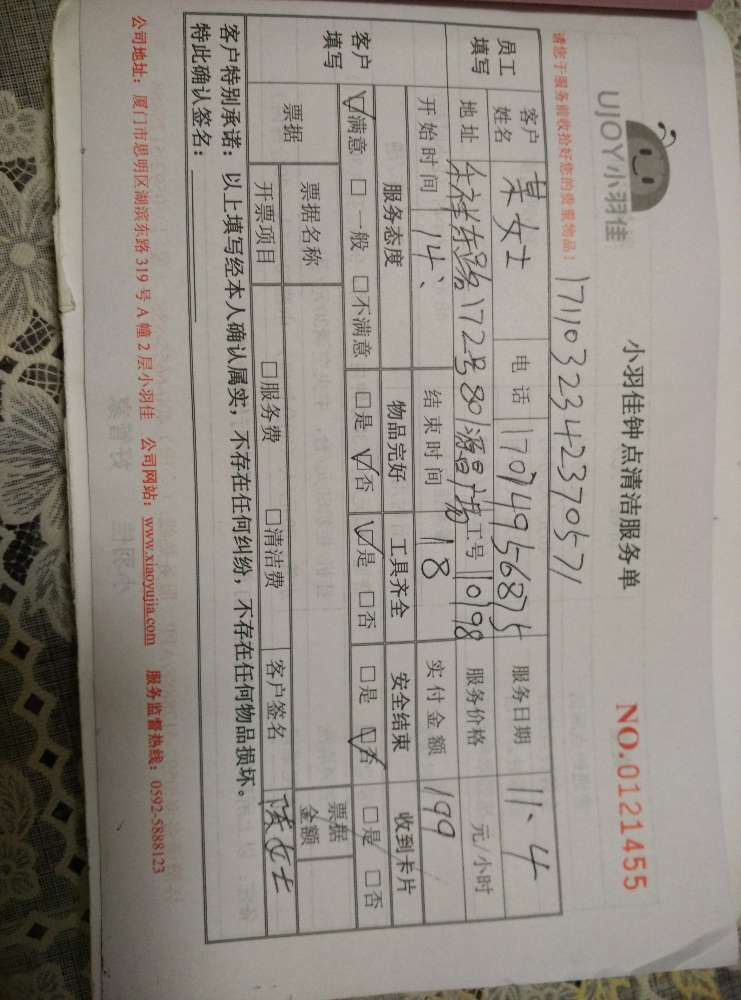 UJOY小羽佳
小羽佳钟点清洁服务单
NO.0121455
请您于服务前收拾好您的贵重物品！
1711032342370571
员工填写
客户姓名 某女士 电话 17074956875 服务日期 11、4
地址 东路172号801 工号 10198 服务价格 元/小时
开始时间 14、 结束时间 18 实付金额 199
客户填写
服务态度 物品完好 工具齐全 安全结束 收到卡片
☑满意 □一般 □不满意 □是 ☑否 ☑是 □否 □是 ☑否 □是 □否
票据 票据名称 票据金额
开票项目 □服务费 □清洁费 客户签名 女士
客户特别承诺：以上填写经本人确认属实，不存在任何纠纷，不存在任何物品损坏。
特此确认签名：
公司地址：厦门市思明区湖滨东路319号A幢2层小羽佳 公司网站：www.xiaoyujia.com 服务监督热线：0592-5888123